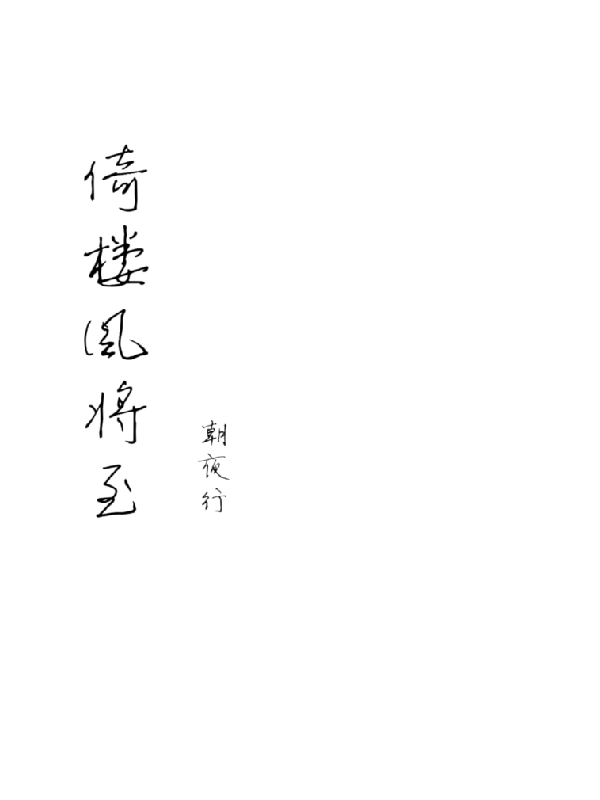 倚楼风将至
朝夜行